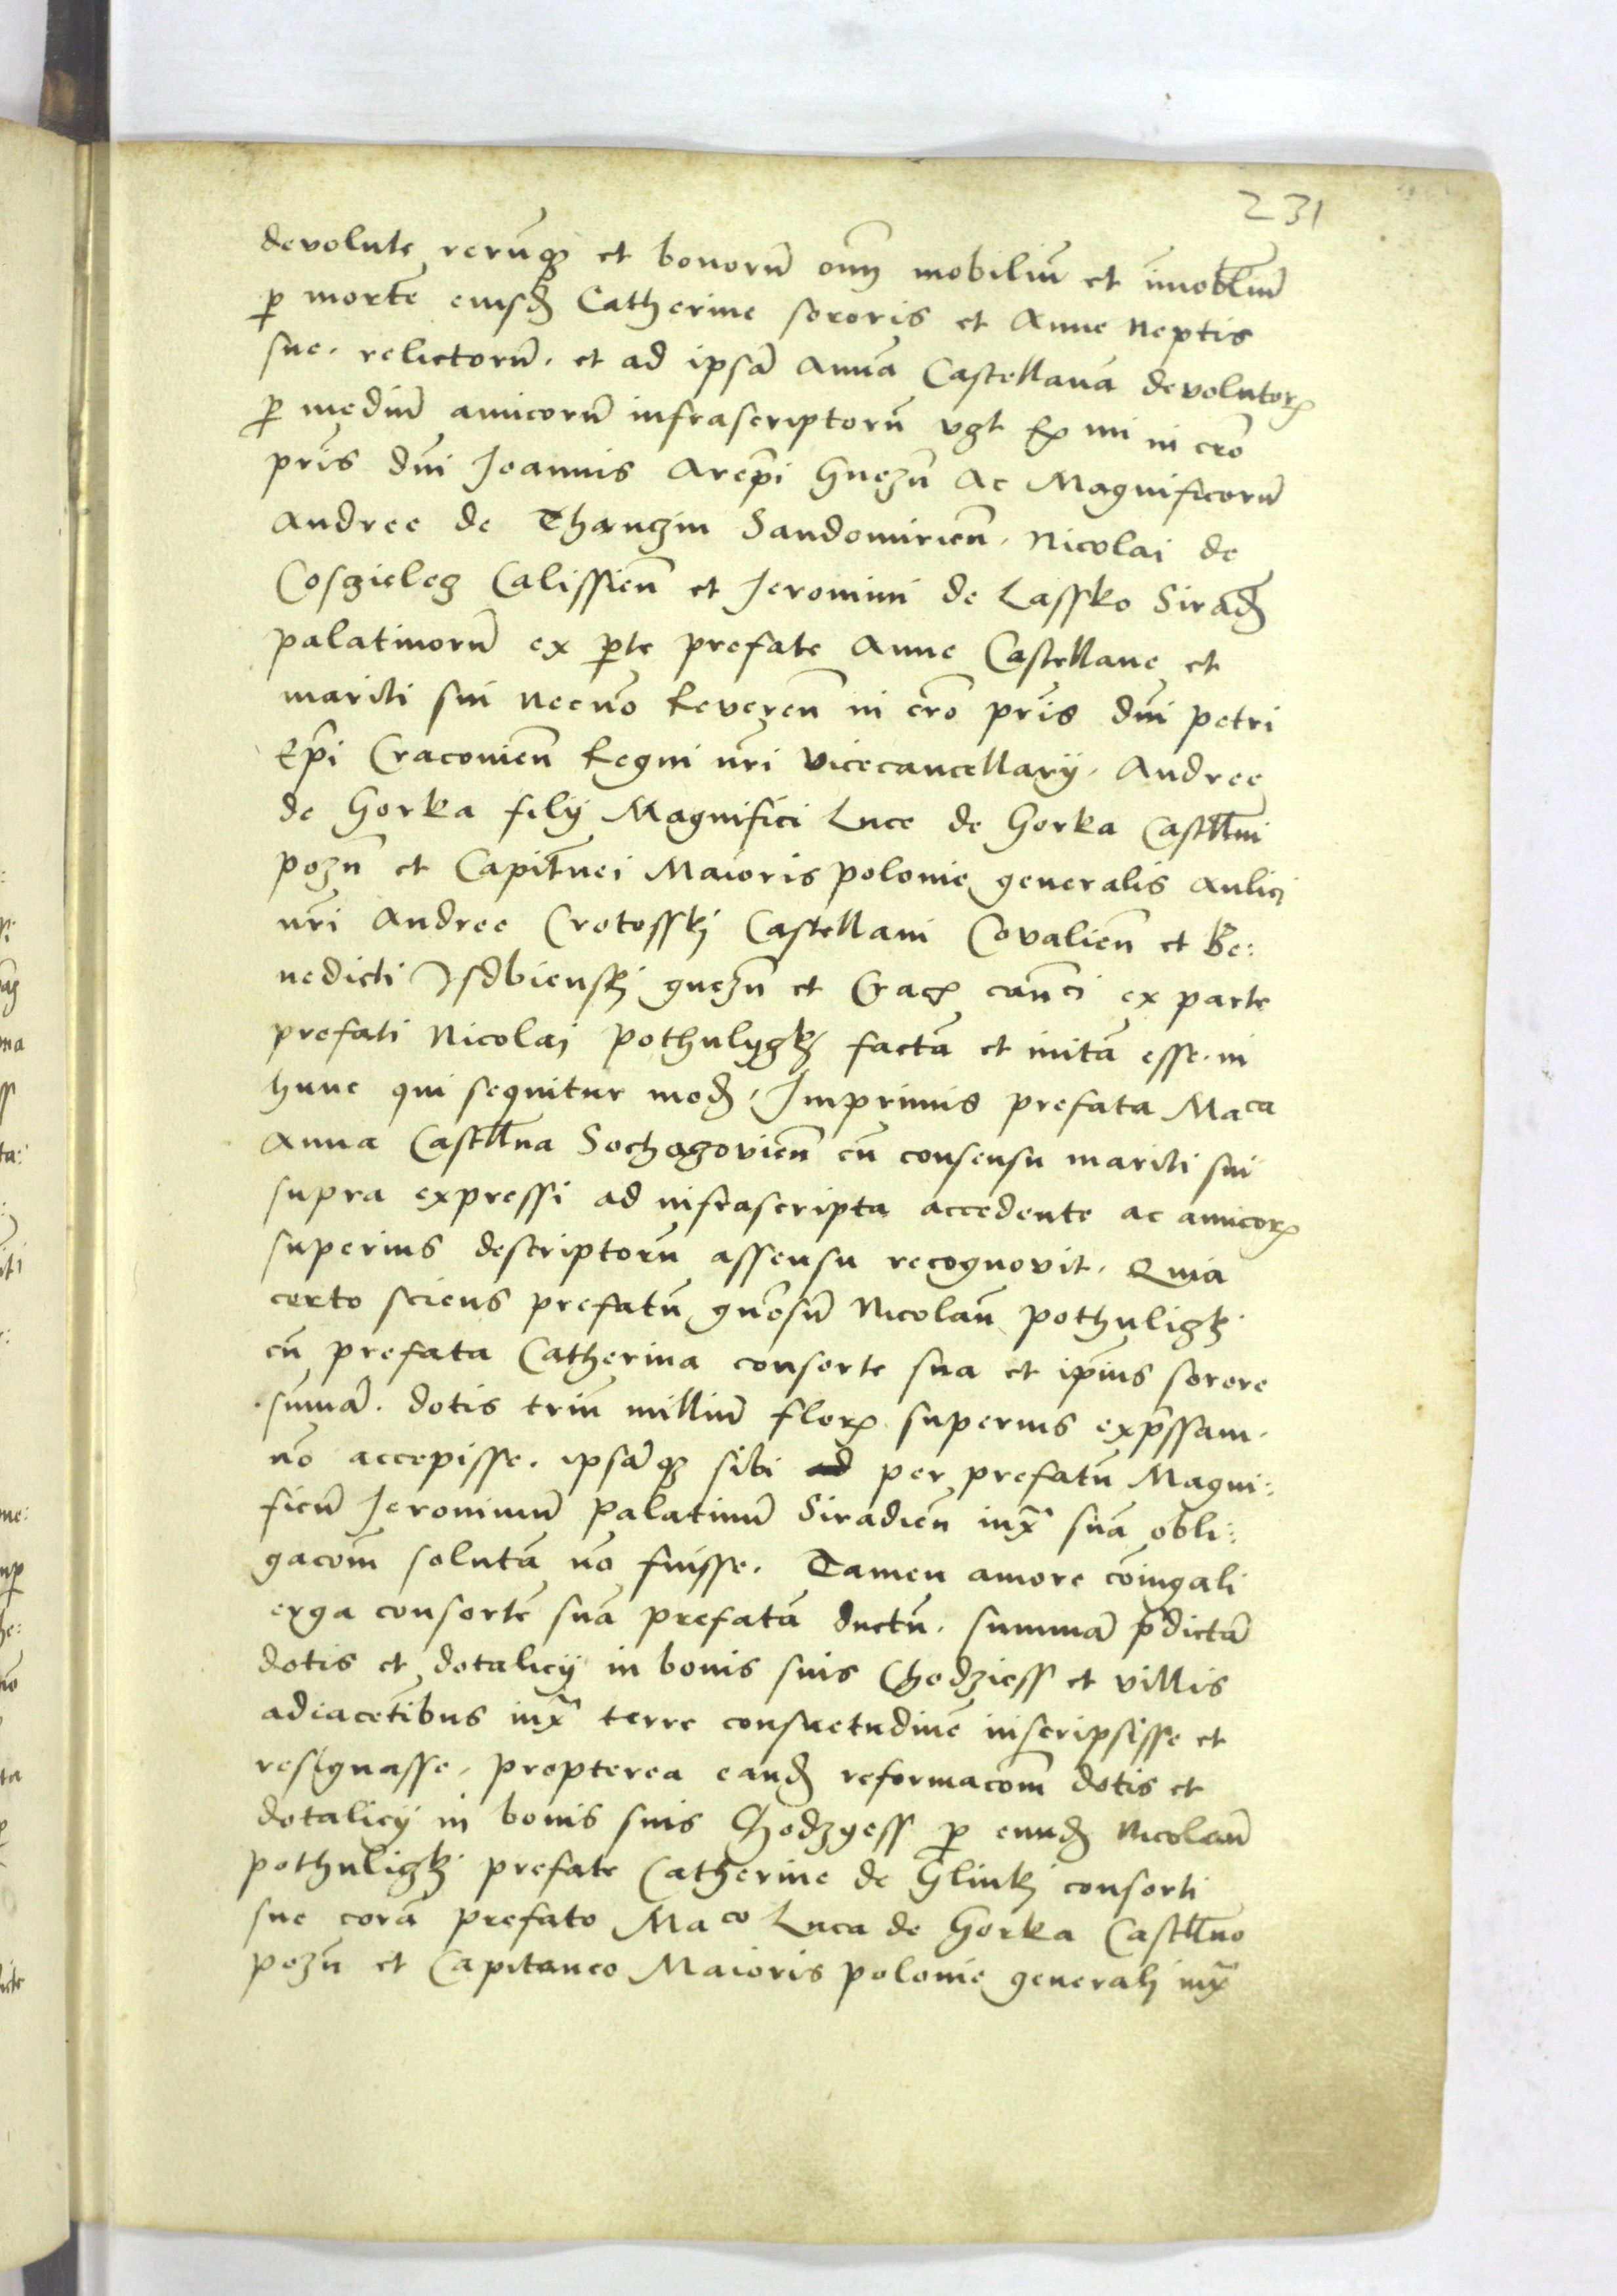 231
devolute rerūq₃ et bonorū om̄ mobiliū et īmobliū
ꝑ mortē eiusd Catherine sororis et Anne Neptis
sue. relictorū. et ad ipsā Annā Castellanā devolutorꝝ
ꝑ mediū amicorū infrascriptorū vꝫ in cr̄o
pr̄is dn̄i Joannis Arep̄i Gnezn̄ Ac Magnificorū
Andree de Thanczin Sandomirien̄. Nicolai de
Cosczieleg Calissien̄ et Jeronimi de Lassko Sirad̄
palatinorū ex ꝑte prefate Anne Castellane et
mariti sui Necnō Reveren̄ in cr̄o pr̄is dn̄i petri
Ep̄i Cracovien̄ Regni nr̄i vicecancellarij. Andree
de Gorka filij Magnifici Luce de Gorka Castll̄ni
pozn̄ et Capit̄nei Maioris polonie generalis aulici
nr̄i Andree Crotosskj Castellani Covalien̄ et Be:
nedicti Jsdbienskj gnezn̄ et Cracꝫ can̄ci ex parte
prefati Nicolaj pothulygkj factā et initā esse. in
hunc qui sequitur mod̄. Imprimis prefata Maca
Anna Castll̄na Sochazovien̄ cū consensu mariti sui
supra expressi ad infrascripta accedente ac amicorꝝ
superius descriptorū assensu recognovit. Quia
certo sciens prefatū gn̄osū Nicolaū pothuligkj
cū prefata Catherina consorte sua et ip̄ius sorore
sūmā. dotis triū milliū florꝝ superius exp̄ssam.
nō accepisse. ipsāq₃ sibi ad per prefatū Magni:
ficū Jeronimū palatinū Siradien̄ iux̄ suā obli:
gacōm solutā nō fuisse. Tamen amore cōiugali
erga consortē suā prefatā ductū. summā p̄dictā
dotis et dotalicij in bonis suis Chodziess et villis
adiacētibus iux̄ terre consuetudinē inscripsisse et
resignasse. propterea eand̄ reformacōm dotis et
dotalicij in bonis suis Chodzyess ꝑ eund̄ Nicolaū
pothuligkj prefate Catherine de Glinkj consorti
sue corā prefato Maco Luca de Gorka Castll̄no
pozn̄ et Capitaneo Maioris polonie generalj iux̄